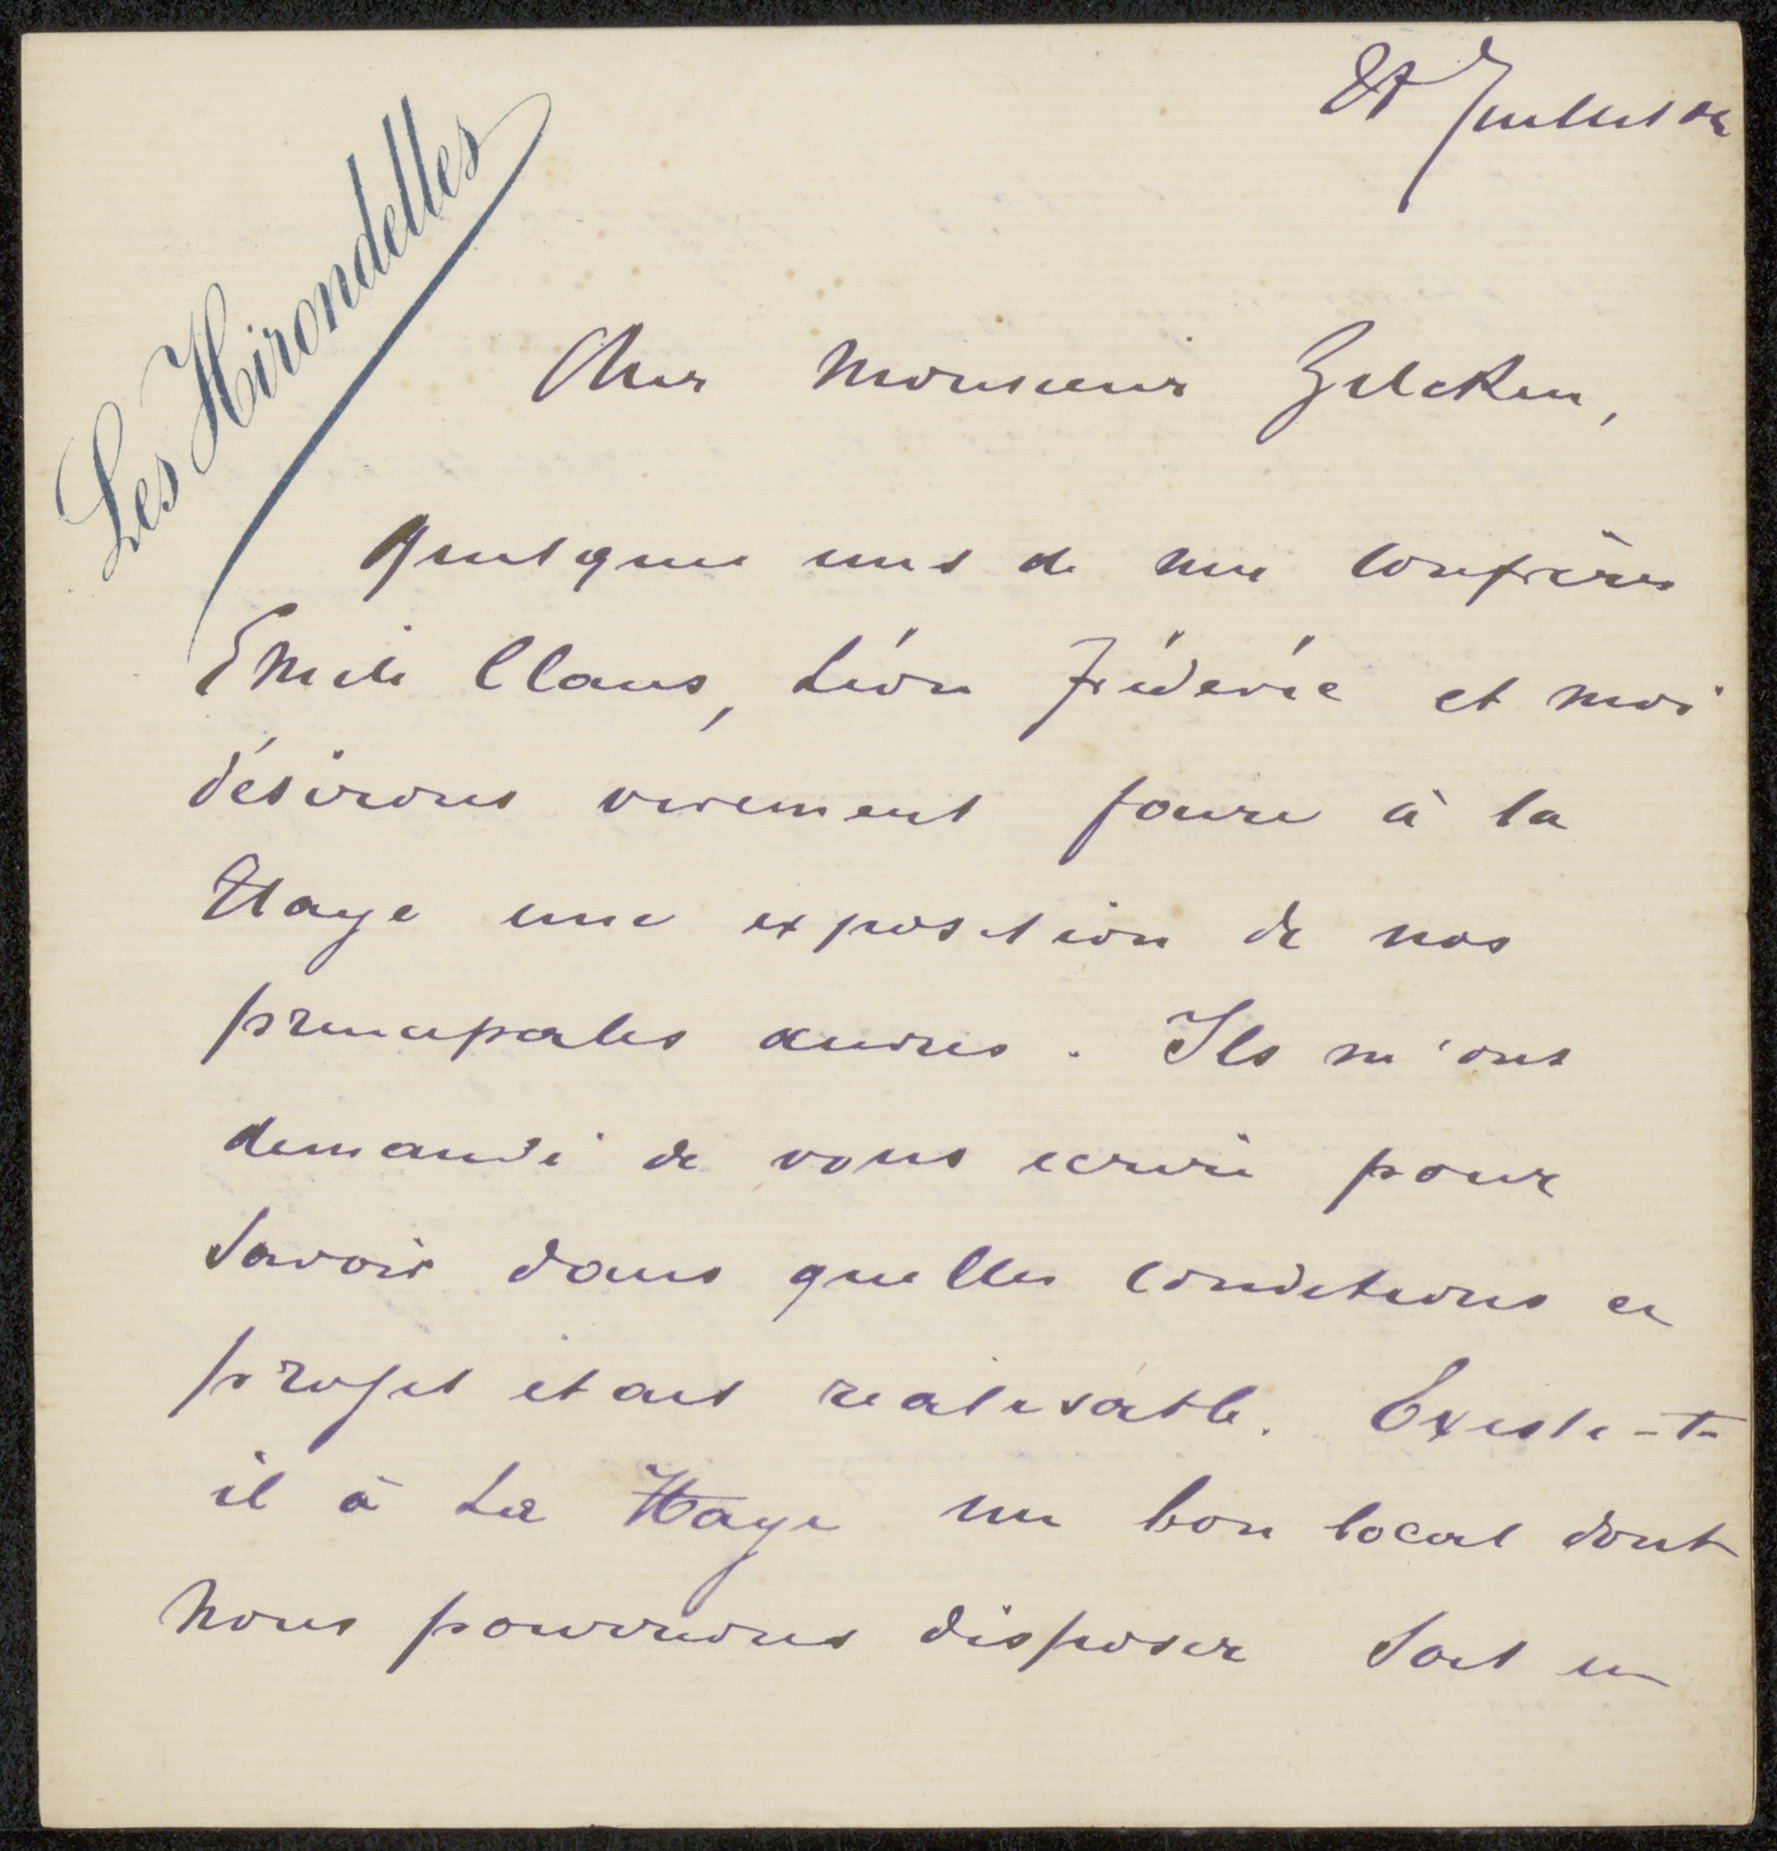 Juillet
Les Hirondelles
Cher Monsieur Zilcken,
Quelques uns de mes confrères
Emile Claus, Léon Fréderic et moi
désirons vivement faire à la
Haye une exposition de nos
principales œuvres. Ils m'ont
demandé de vous ecrire pour
savoir dans quelles conditions ce
projet était realisable. Existe-t-
il à La Haye un bon local dont
nous pourrions disposer soit en